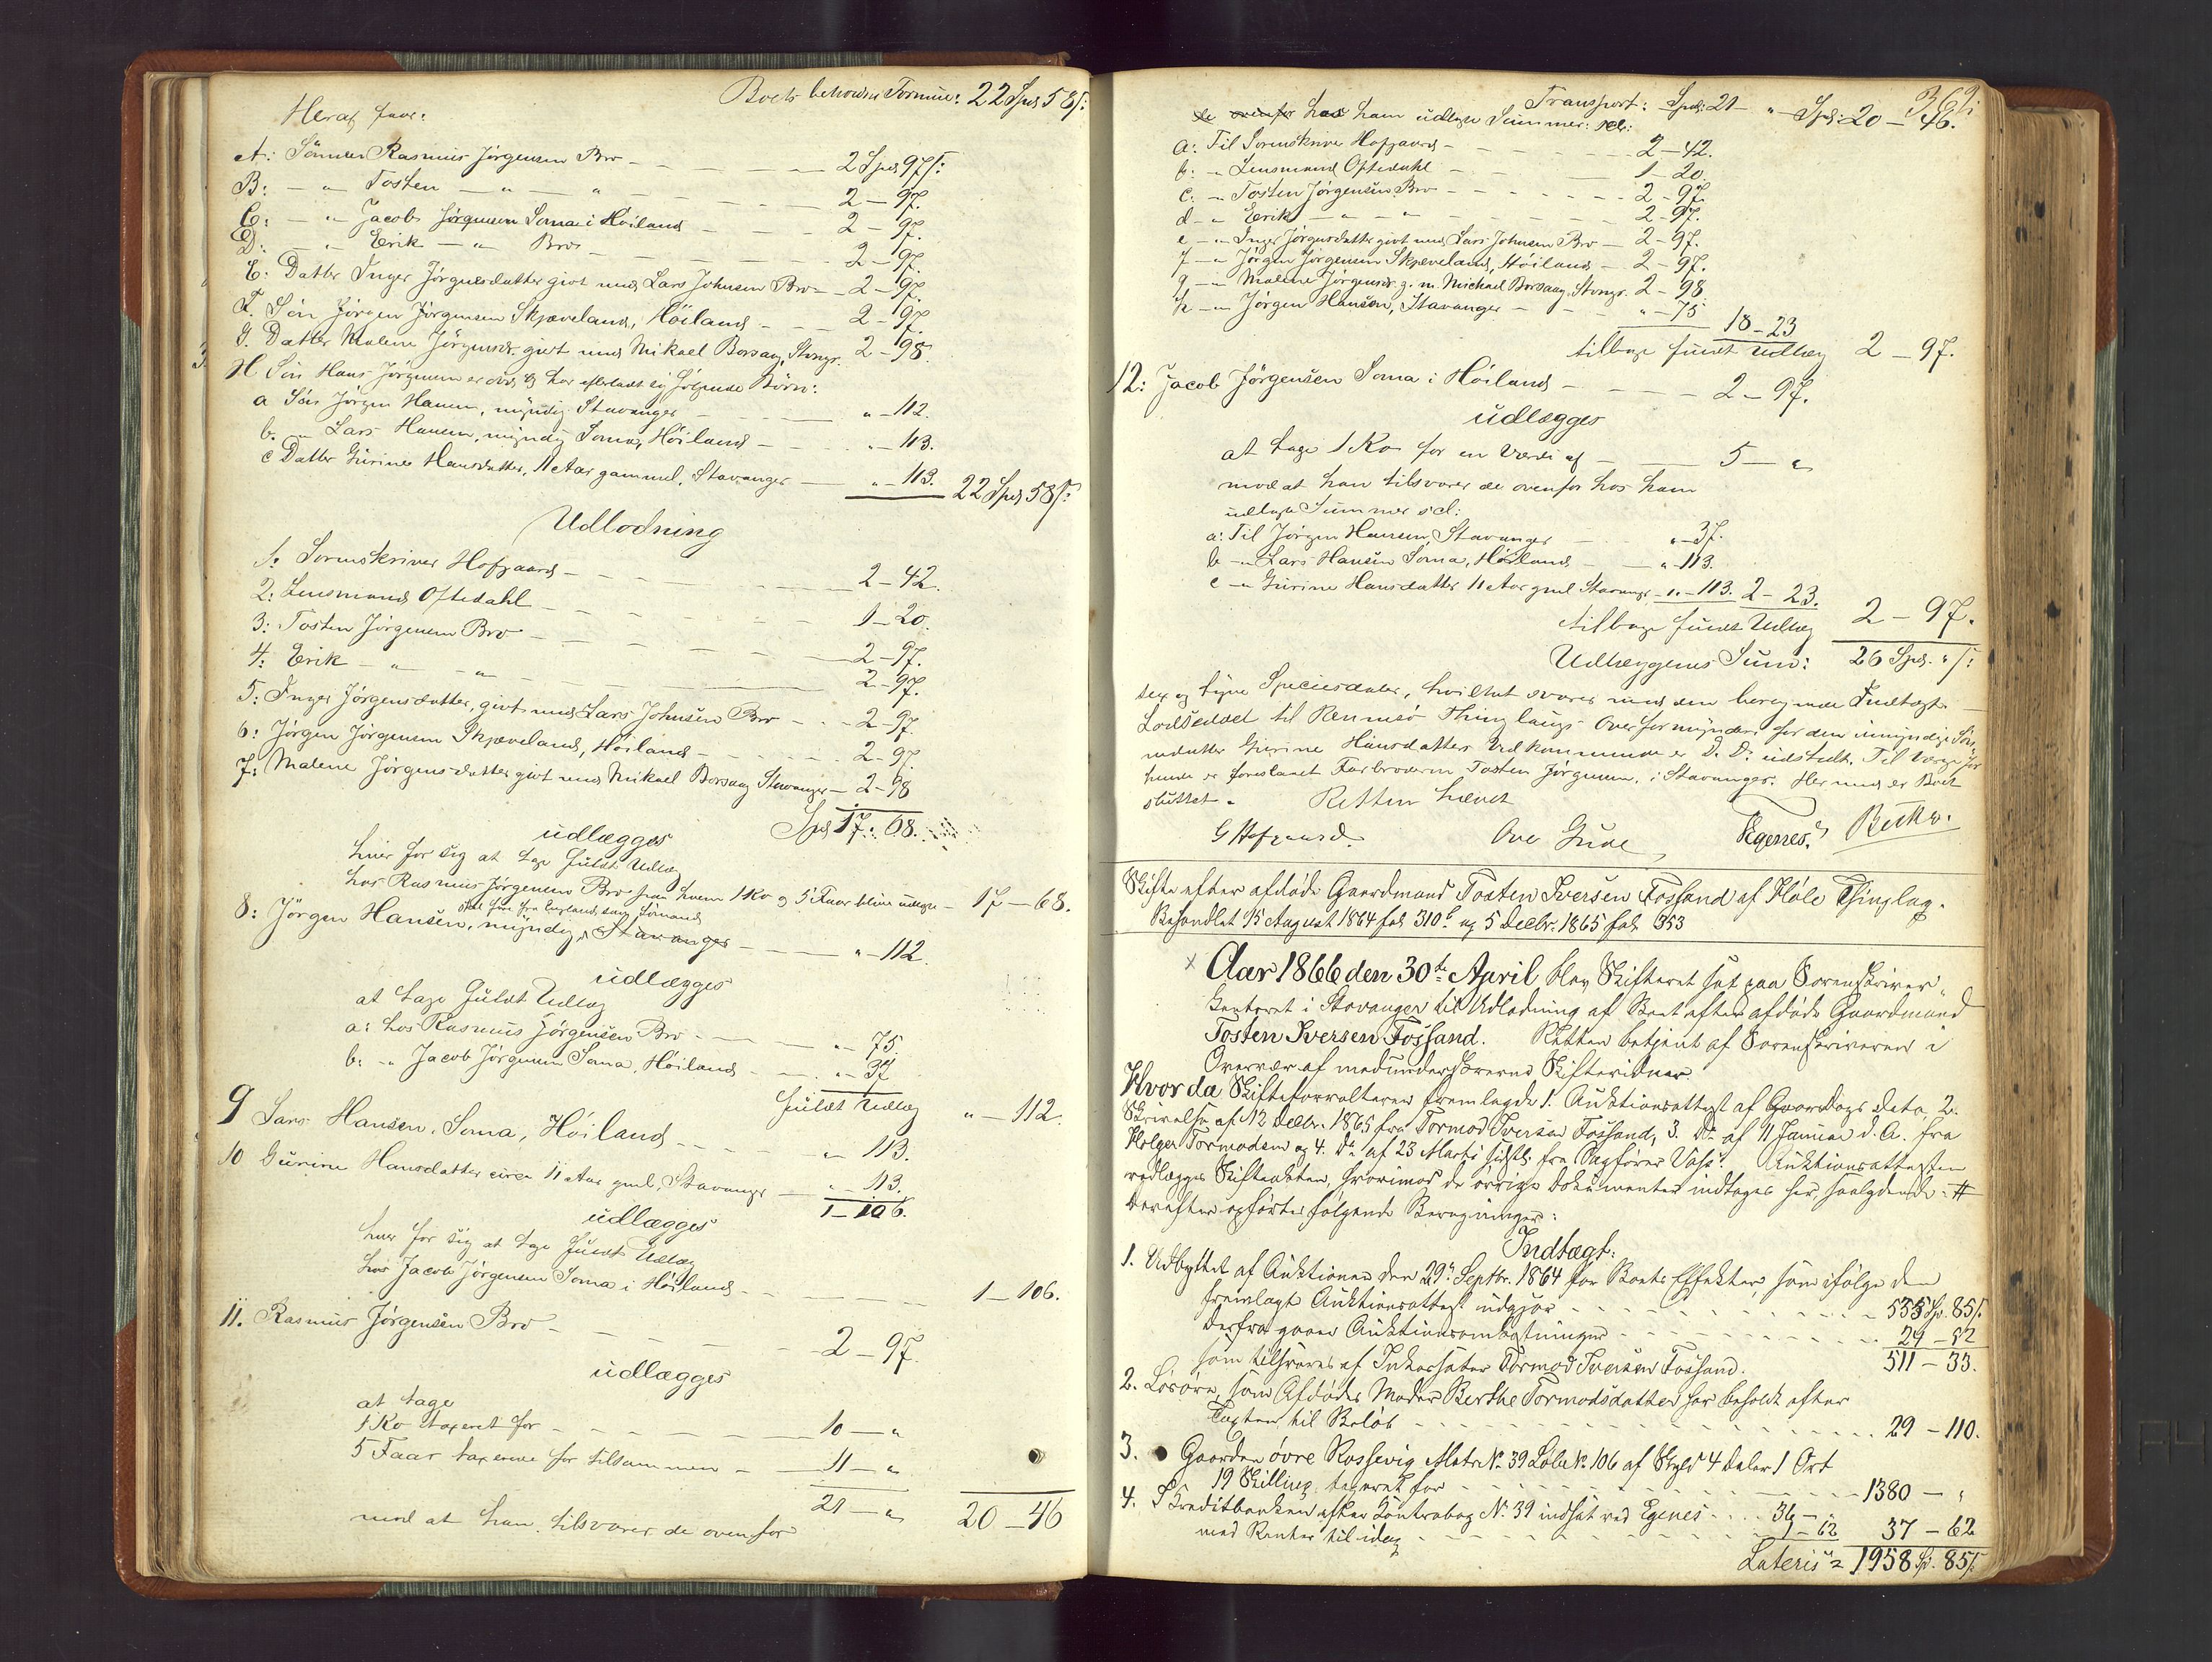 Boets beholdne Formue: 22 Spd 58 s:
Heraf faar:
A: Sönnen Rasmus Jörgensen Bro — 2 Spd 97 s:
B: — " Tosten — " — " 2 – 97.
C: — " Jacob Jörgensen Soma i Höiland — 2 – 97.
D: — " Erik — " Bro — 2 – 97.
E: Datter Inger Jörgensdatter givt med Lars Johnsen Bro — 2 – 97.
F. Sön Jörgen Jörgensen Skjæveland, Höiland — 2 – 97.
G. Datter Malene Jörgensdr. givt med Mikael Borsaug, Stvngr. 2 – 98.
H Sön Hans Jörgensen er död og har efterladt sig fölgende Börn:
a Sön Jörgen Hansen, myndig Stavanger — " – 112.
b. " Lars Hansen, myndig Soma, Höiland — " – 113.
c Datter Gurine Hansdatter, 11 Aar gammel, Stavanger — " – 113. 22 Spd 58 s:
Udlodning
1: Sorenskriver Hofgaard — 2 – 42.
2: Lensmand Oftedahl — 1 – 20.
3: Tosten Jörgensen Bro — 2 – 97.
4: Erik — " — " — 2 – 97.
5: Inger Jörgensdatter, givt med Lars Johnsen Bro — 2 – 97.
6: Jörgen Jörgensen Skjæveland, Höiland — 2 – 97.
7: Malene Jörgensdatter givt med Mikael Borsaug Stavanger — 2 – 98
Spd 17: 68.
udlægges
hver for sig at tage fuldt Udlæg
hos Rasmus Jörgensen Bro fra hvem 1 Ko og 5 Faar blive udlagte — 17 – 68.
8: Jörgen Hansen, myndig, Stavanger — " – 112.
udlægges
at tage fuldt Udlæg
a: hos Rasmus Jörgensen Bro — " – 75.
b: – " Jacob Jörgensen Soma, Höiland — " – 37
fuldt Udlæg " – 112.
9 Lars Hansen, Soma, Höiland — " 113.
10 Gurine Hansdatter circa 11 Aar gml, Stavanger — " – 113.
1 – 106.
udlægges
hver for sig at tage fuldt Udlæg
hos Jacob Jörgensen Soma i Höiland — 1 – 106.
11. Rasmus Jörgensen Bro — 2 – 97.
udlægges
at tage
1 Ko taxeret for — 10 – "
5 Faar taxerede for tilsammen — 11 – "
21 – " 20 – 46
mod at han tilsvarer de ovenfor
362.
Transport: Spd: 21 " – Spd: 20 – 46.
de ovenfor hos ham udlagte Summer: scl:
a: Til Sorenskriver Hofgaard — 2 – 42.
b: – " Lensmand Oftedahl — 1 – 20.
c: – " Tosten Jörgensen Bro — 2 – 97.
d – " Erik — " — " — 2 – 97.
e – " Inger Jörgensdatter givt med Lars Johnsen Bro — 2 – 97.
f – " Jörgen Jörgensen Skjæveland, Höiland — 2 – 97.
g – " Malene Jörgensdr. g. m. Michael Borsaug, Stvngr. 2 – 98
h – " Jörgen Hansen, Stavanger — " – 75.
18 – 23
tilbage fuldt Udlæg 2 – 97.
12: Jacob Jörgensen Soma i Höiland — 2 – 97.
udlægges
at tage 1 Ko for en Værdi af — 5 – "
mod at han tilsvarer de ovenfor hos ham
udlagte Summer scl:
a: Til Jörgen Hansen, Stavanger — " – 37.
b – " Lars Hansen Soma, Höiland — " – 113.
c – " Gurine Hansdatter 11 Aar gml Stavanger – " – 113. 2 – 23.
tilbage fuldt Udlæg 2 – 97.
Udlæggenes Sum: 26 Spd. " s:
sex og tyve Speciesdaler, hvilket svarer med den beregnede Indtægt. —
Lodseddel til Rennesö Thinglaugs Overformynderi for den umyndige Sön-
nedatter Gurine Hansdatters Vedkommende er D. D. udstedt. Til Værge for
hende er foreslaaet Farbroderen Tosten Jörgensen, i Stavanger. Hermed er Boet
sluttet. Retten hævet
G Hofgaard. Ove Gude Egenes. Berthr.
Skifte efter afdöde Gaardmand Tosten Iversen Fossand af Höle Thinglag.
Behandlet 15 August 1864 fol 310 b og 5 Decbr. 1865 fol 353
x Aar 1866 den 30te April blev Skifteret sat paa Sorenskriver-
kontoret i Stavanger til Udlodning af Boet efter afdöde Gaardmand
Tosten Iversen Fossand. Retten betjent af Sorenskriveren i
Overvær af medunderskrevne Skiftevidner.
Hvor da Skifteforvalteren fremlagde 1. Auktionsattest af Gaardags Dato, 2.
Skrivelse af 12 Decbr. 1865 fra Tormod Iversen Fossand, 3. Do af 11 Januar d. A. fra
Holger Tormodsen og 4. Do af 23 Marts sidstl. fra Sagförer Voss. Auktionsattesten
vedlægges Skifteakten, hvorimod de övrige Dokumenter indtages her, saalydende: #
Derefter opförtes fölgende Beregninger:
Indtægt:
1. Udbyttet af Auktionen den 29de Septbr. 1864 for Boets Effekter, som ifölge den
fremlagte Auktionsattest udgjör — 535 Sp. 85 s.
Derfra gaaer Auktionsomkostninger — 24 – 52
som tilsvares af Inkassator Tormod Iversen Fossand. 511 – 33.
2. Lösöre, som Afdödes Moder Berthe Tormodsdatter har beholdt efter
Taxten til Belöb — 29 – 110.
3. Gaarden övre Rossevig Matr. No 39 Löbe No. 106 af Skyld 4 Daler 1 Ort
19 Skilling, taxeret for — 1380 – "
4. I Kreditbanken efter Kontrabog No. 39 indsat ved Egenes .... 36 – "
med Renter til idag — 1 – 62 37 – 62
Lateris = 1958 Sp. 85 s.